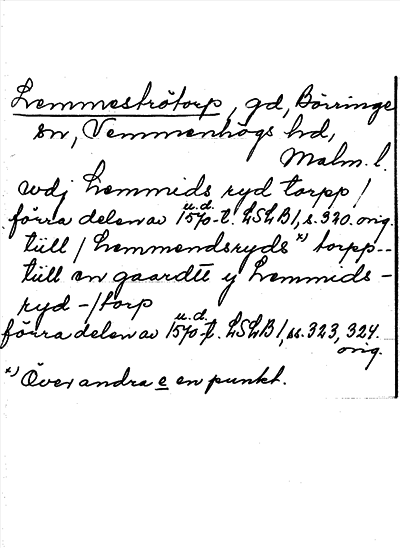 Lemmeströtorp, gd, Börringe
sn, Vemmenhögs hd,
Malm. l.
wdj Lemmids ryd torpp /
förra delen av 1570-t. u.d. LSLB 1, s. 320. orig.
tiill / Lemmendsryds x) torpp--
tiill en gaardtt y Lemmids-
ryd -/torp
förra delen av 1570-t. u.d. LSLB 1, ss. 323, 324.
orig.
x) Över andra e en punkt.